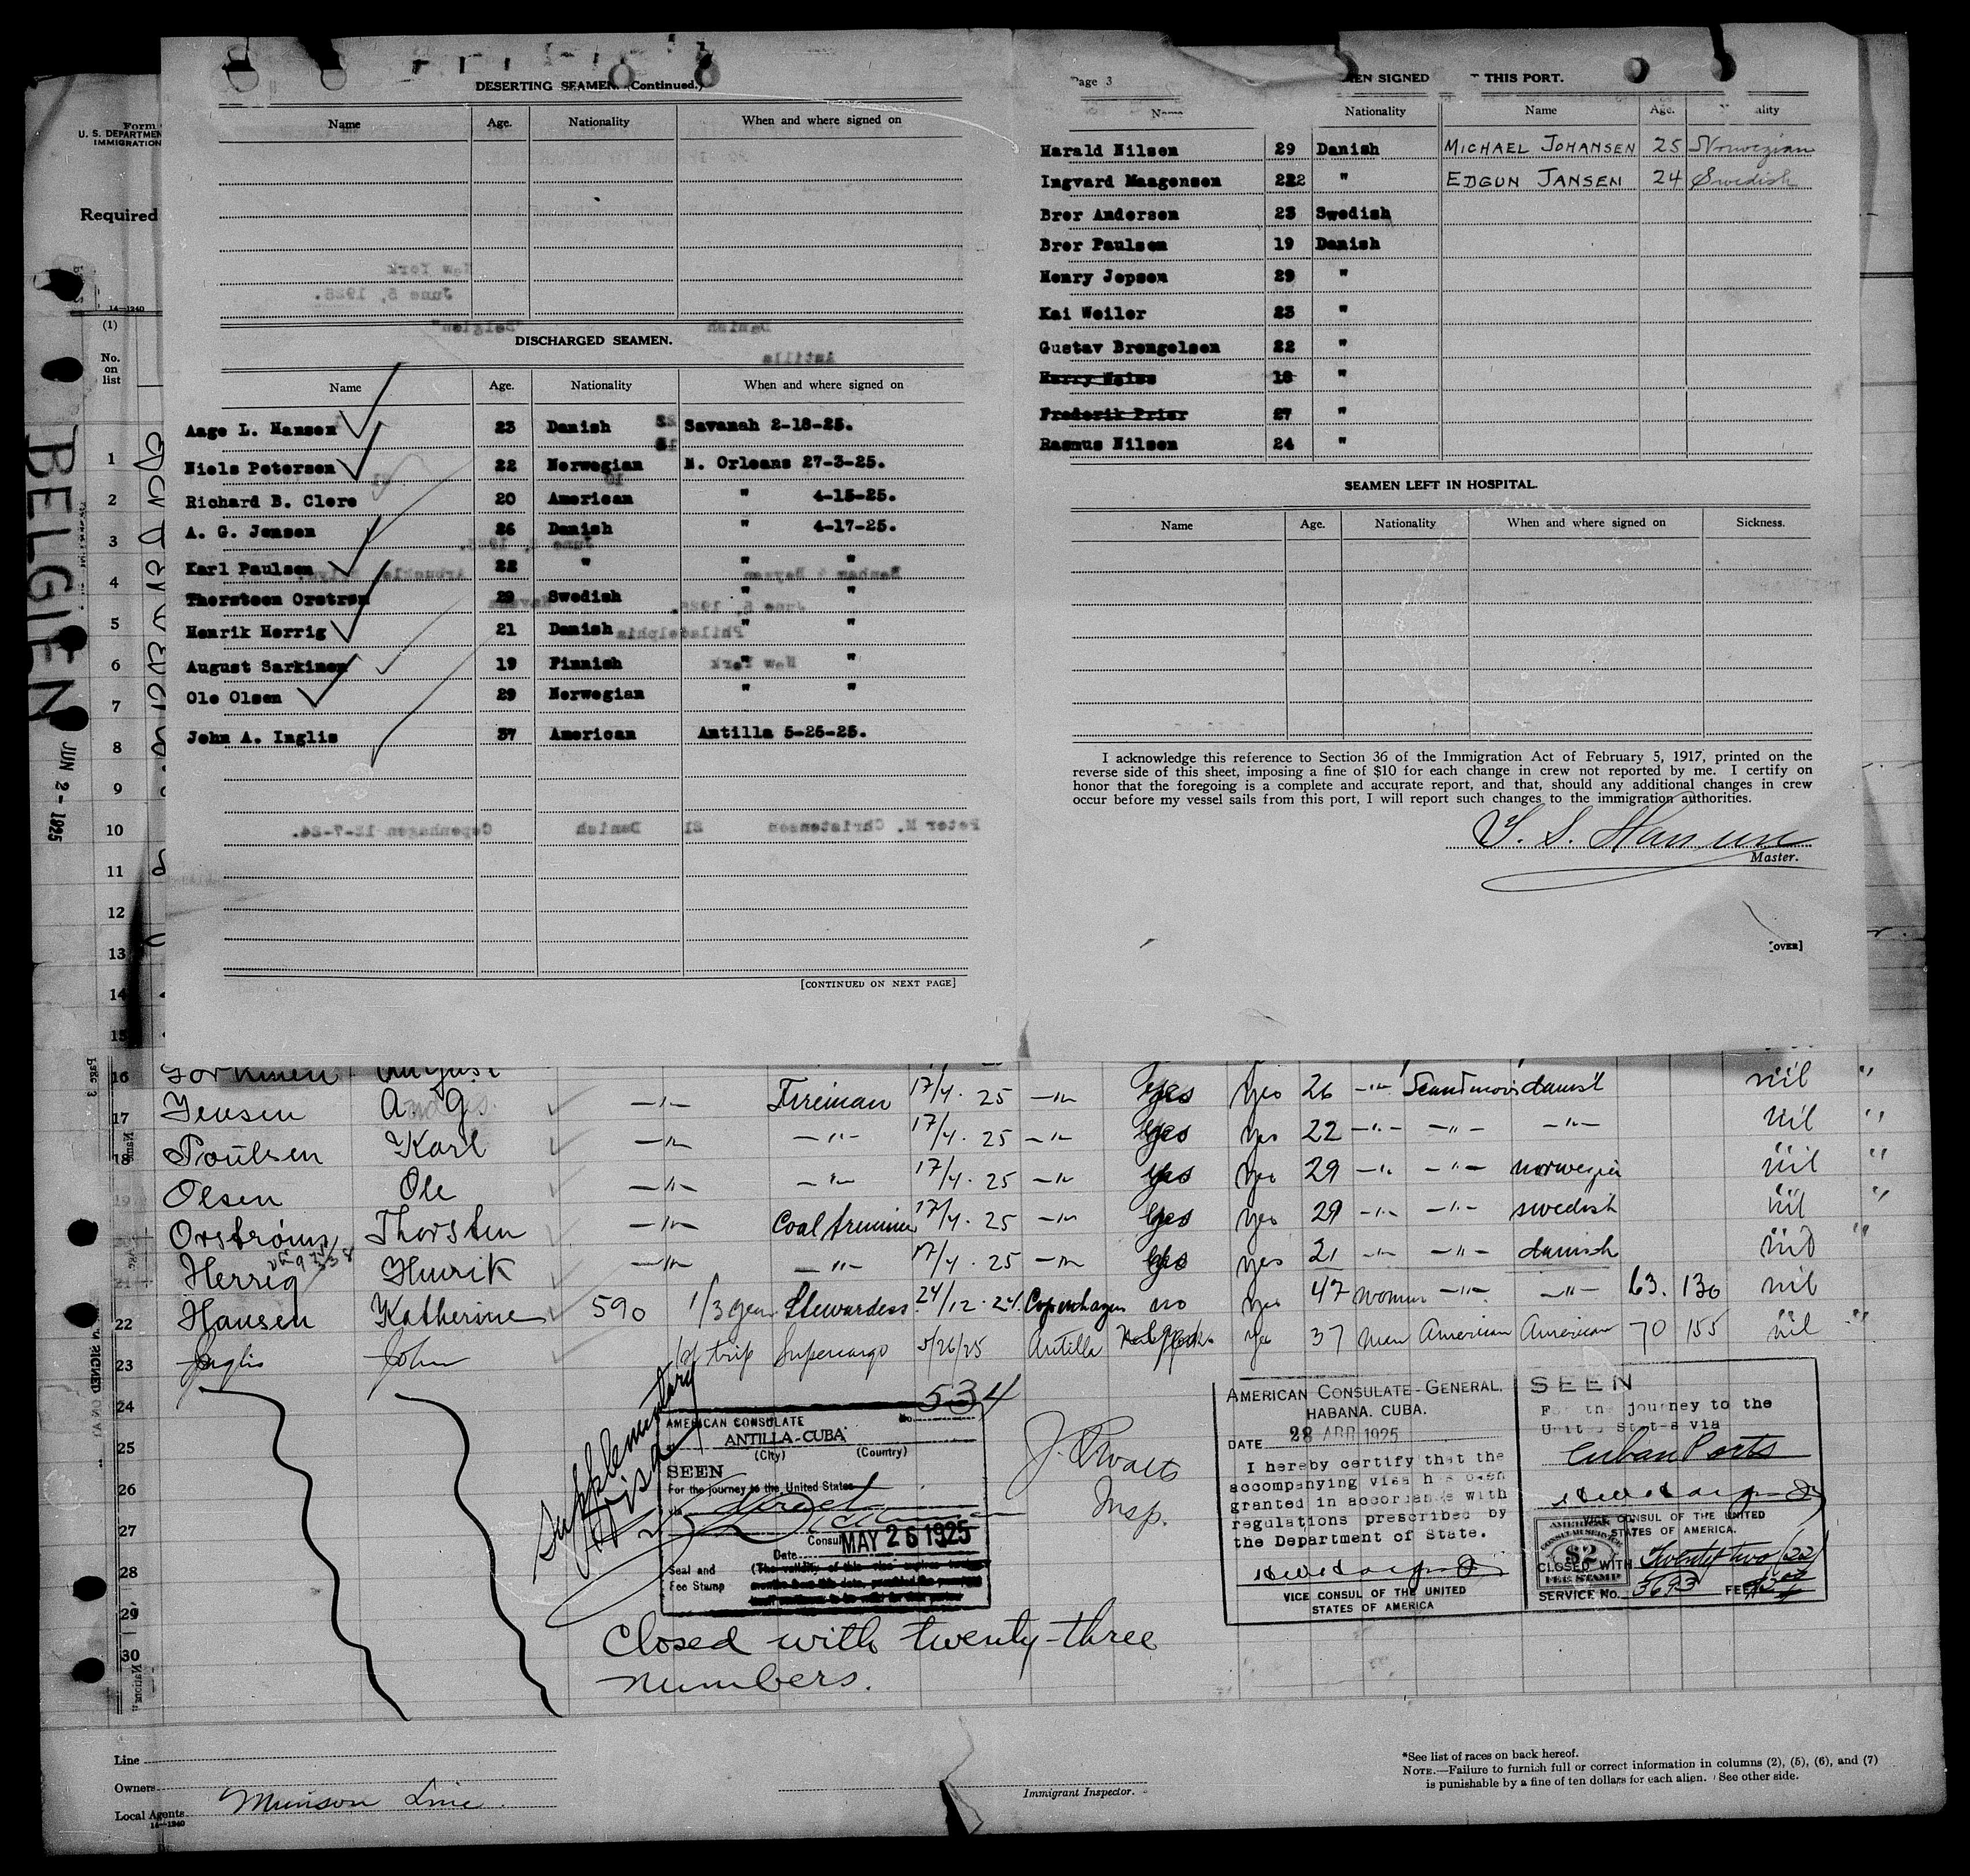 DESERTING SEAMEN. (Continued.)
Name Age. Nationality When and where signed on
DISCHARGED SEAMEN.
Name Age. Nationality When and where signed on
Aage L. Hansen 23 Danish Savanah 2-18-25.
Niels Petersen 22 Norwegian N. Orleans 27-3-25.
Richard B. Clere 20 American " 4-15-25.
A. G. Jensen 26 Danish " 4-17-25.
Karl Paulsen 22 " " "
Thorsteen Orstrøm 29 Swedish " "
Henrik Herrig 21 Danish " "
August Sarkinen 19 Finnish " "
Ole Olsen 29 Norwegian " "
John A. Inglis 37 American Antilla 5-26-25.
[CONTINUED ON NEXT PAGE]
Page 3
EN SIGNED THIS PORT.
Name Nationality Name Age. ality
Harald Nilsen 29 Danish MICHAEL JOHANSEN 25 Norwegian
Ingvard Maagensen 22 " EDGUN JANSEN 24 Swedish
Brør Andersen 23 Swedish
Brør Paulsen 19 Danish
Henry Jepsen 29 "
Kai Weiler 23 "
Gustav Brengelsen 22 "
Harry Weiss 18 "
Frederik Prier 27 "
Rasmus Nilsen 24 "
SEAMEN LEFT IN HOSPITAL.
Name Age. Nationality When and where signed on Sickness.
I acknowledge this reference to Section 36 of the Immigration Act of February 5, 1917, printed on the
reverse side of this sheet, imposing a fine of $10 for each change in crew not reported by me. I certify on
honor that the foregoing is a complete and accurate report, and that, should any additional changes in crew
occur before my vessel sails from this port, I will report such changes to the immigration authorities.
Master.
[OVER]
Form
U. S. DEPARTMEN
IMMIGRATION
Required
14—1240
(1)
No.
on
list
BELGIEN
JUN 2 - 1925
1
2
3
4
5
6
7
8
9
10
11
12
13
14
15
16
17 Jensen A G —"— Fireman 17/4. 25 —"— yes yes 26 —"— danish nil "
18 Poulsen Karl —"— —"— 17/4. 25 —"— yes yes 22 —"— —"— —"— nil "
19 Olsen Ole —"— —"— 17/4. 25 —"— yes yes 29 —"— —"— norwegian nil "
20 Orstrøm Thorsten —"— Coaltrimmer 17/4. 25 —"— yes yes 29 —"— —"— swedish nil "
21 Herrig Henrik —"— —"— 17/4. 25 —"— yes yes 21 —"— —"— danish nil "
22 Hansen Katherine 590 1/3 year Stewardess 24/12. 24 Copenhagen no yes 47 women —"— —"— 63. 130 nil
23 Inglis John 1st trip Supercargo 5/26/25 Antilla yes 37 man American American 70 155 nil "
24
25
26
27
28
29
30
Supplementary
Visa
AMERICAN CONSULATE No. 534
ANTILLA-CUBA
(City) (Country)
SEEN
For the journey to the United States
via direct
Consul
Date MAY 26 1925
Seal and
Fee Stamp
Insp.
AMERICAN CONSULATE-GENERAL,
HABANA. CUBA.
DATE 28 ABR 1925
I hereby certify that the
accompanying visa has been
granted in accordance with
regulations prescribed by
the Department of State.
VICE CONSUL OF THE UNITED
STATES OF AMERICA
SEEN
For the journey to the
United States via
Cuban Ports
VICE CONSUL OF THE UNITED
STATES OF AMERICA.
AMERICAN
CONSULAR SERVICE
$2
FEE STAMP
CLOSED WITH Twenty two (22)
SERVICE No. 3693 FEE
Closed with twenty-three
numbers.
Line
Owners
Local Agents Munson Line
14—1240
Immigrant Inspector.
*See list of races on back hereof.
NOTE.—Failure to furnish full or correct information in columns (2), (5), (6), and (7)
is punishable by a fine of ten dollars for each alien. See other side.